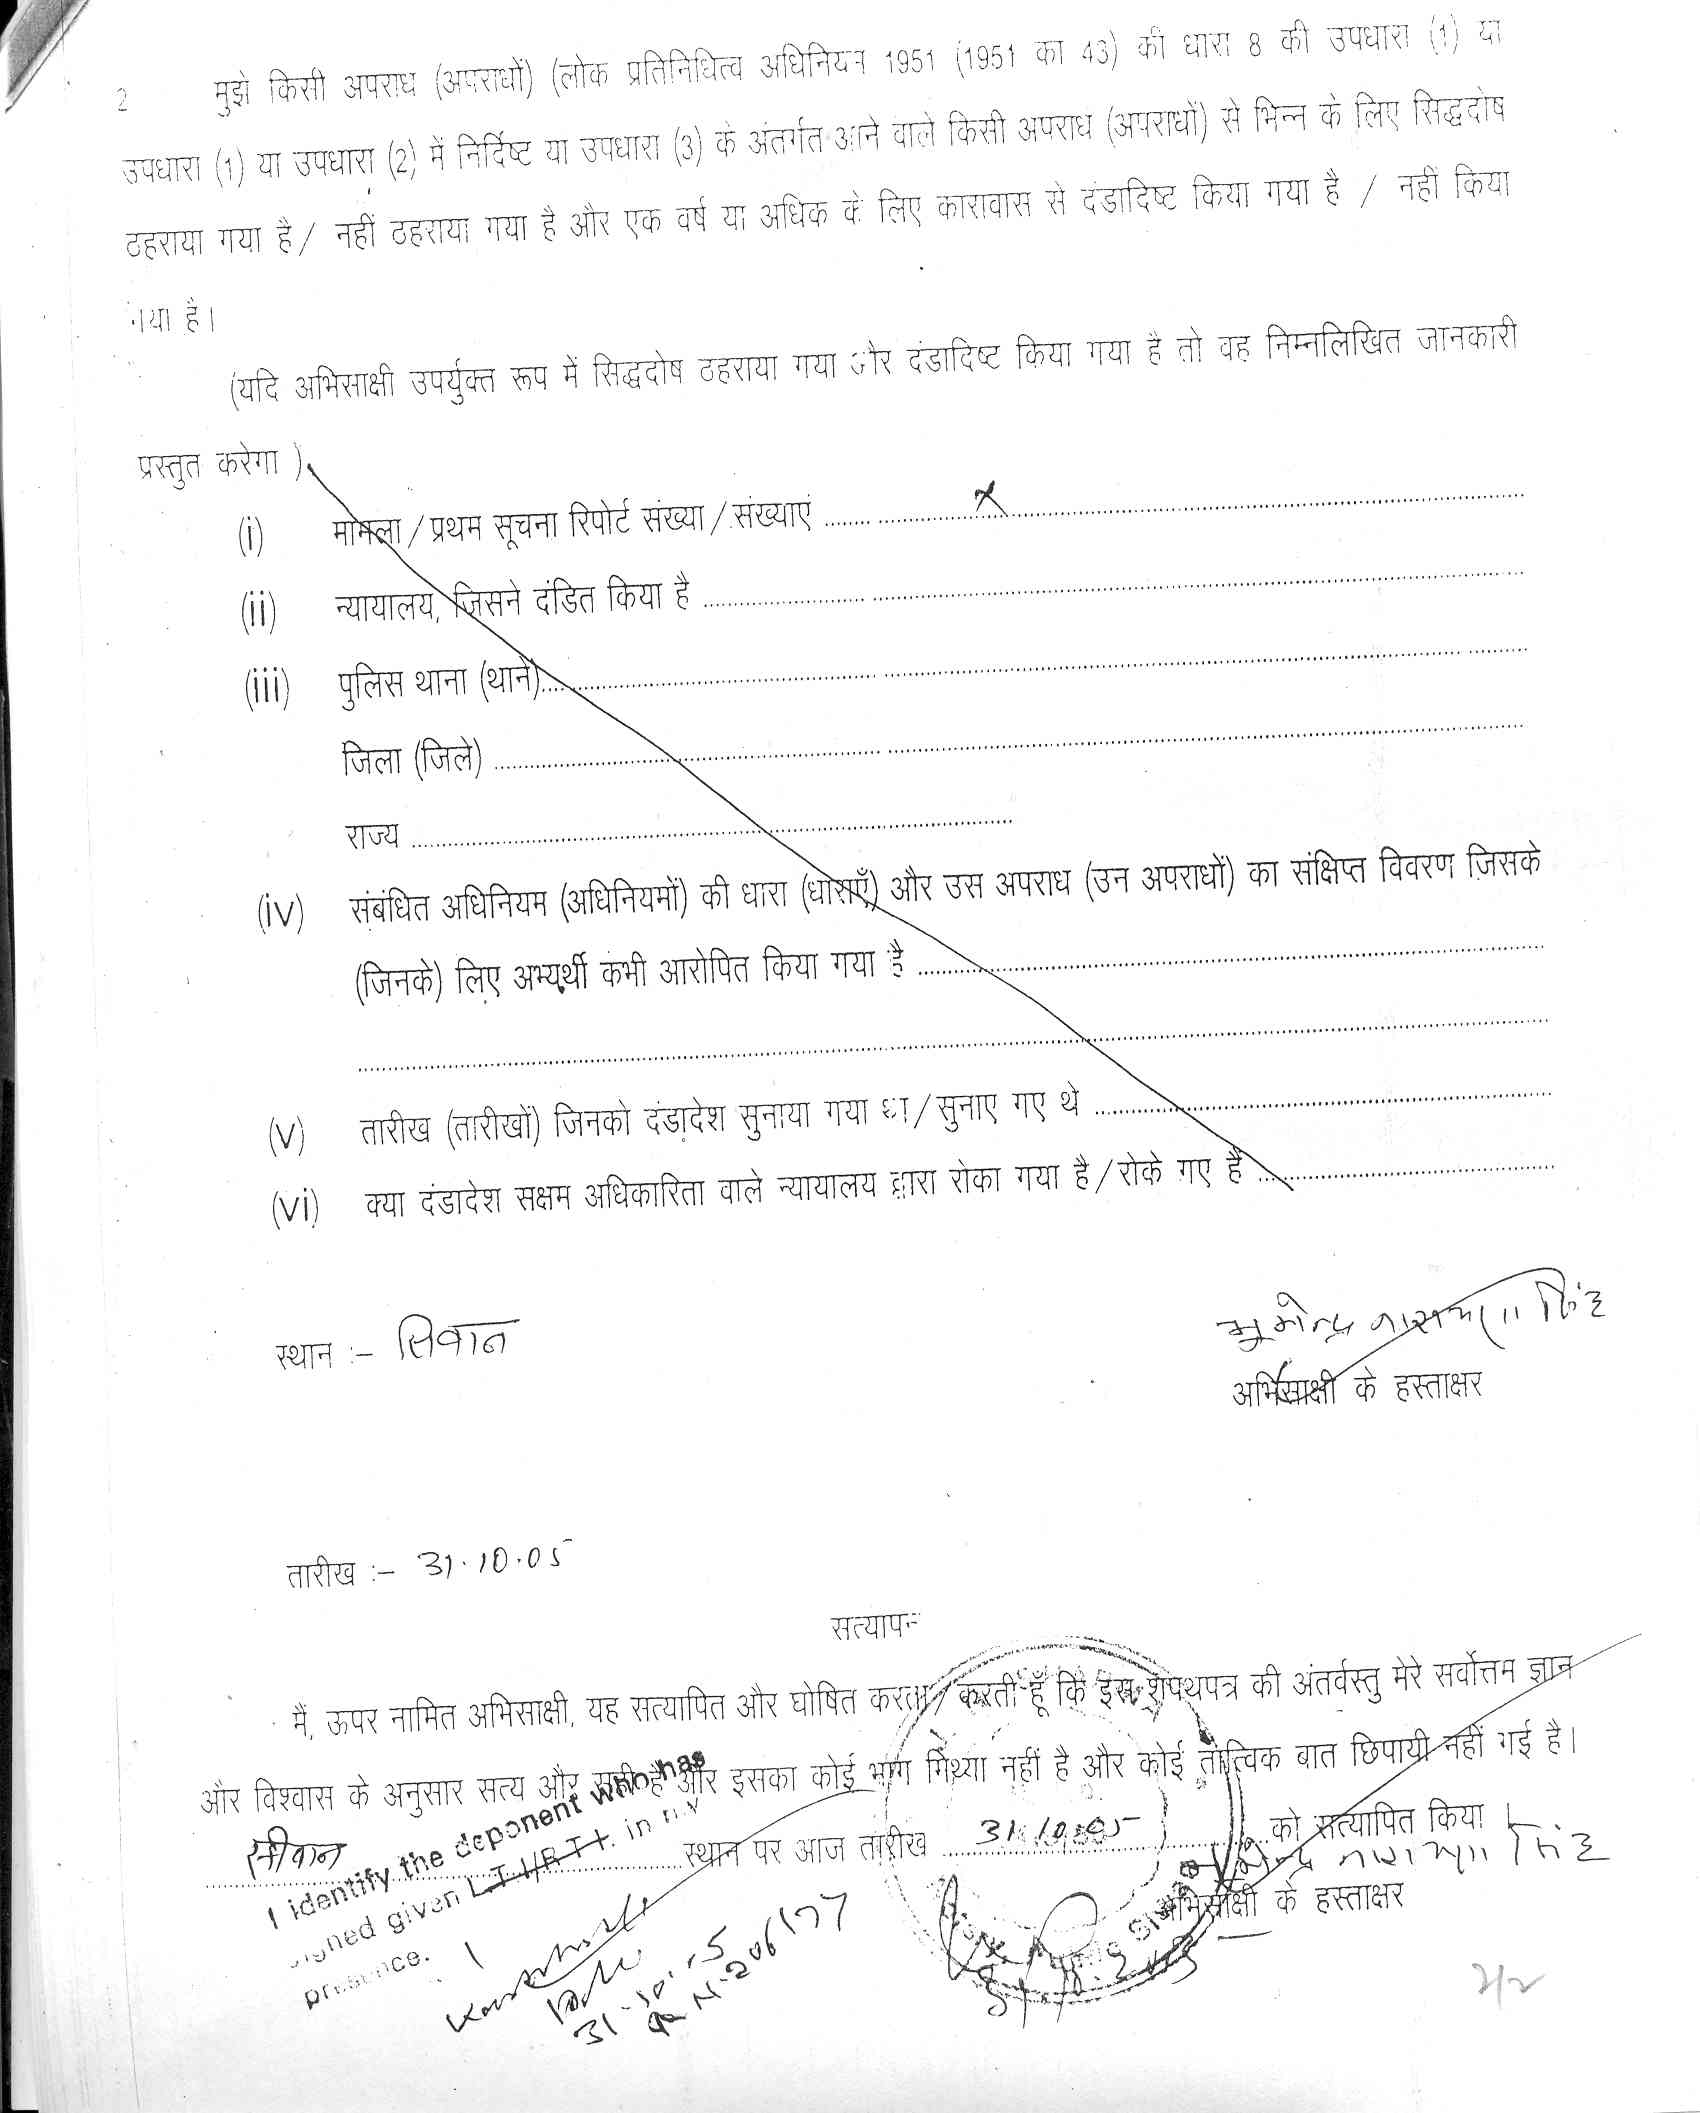 2 मुझे किसी अपराध (अपराधों) (लोक प्रतिनिधित्व अधिनियम 1951 (1951 का 43) की धारा 8 की उपधारा (1) या
उपधारा (1) या उपधारा (2) में निर्दिष्ट या उपधारा (3) के अंतर्गत आने वाले किसी अपराध (अपराधों) से भिन्न के लिए सिद्धदोष
ठहराया गया है/ नहीं ठहराया गया है और एक वर्ष या अधिक के लिए कारावास से दंडादिष्ट किया गया है / नहीं किया
गया है।
(यदि अभिसाक्षी उपर्युक्त रूप में सिद्धदोष ठहराया गया और दंडादिष्ट किया गया है तो वह निम्नलिखित जानकारी
प्रस्तुत करेगा )
(i) मामला/प्रथम सूचना रिपोर्ट संख्या/संख्याएं .......... x
(ii) न्यायालय, जिसने दंडित किया है ..........
(iii) पुलिस थाना (थाने)..........
जिला (जिले) ..........
राज्य ..........
(iv) संबंधित अधिनियम (अधिनियमों) की धारा (धाराएँ) और उस अपराध (उन अपराधों) का संक्षिप्त विवरण जिसके
(जिनके) लिए अभ्यर्थी कभी आरोपित किया गया है ..........
..........
(v) तारीख (तारीखों) जिनको दंडादेश सुनाया गया था/सुनाए गए थे ..........
(vi) क्या दंडादेश सक्षम अधिकारिता वाले न्यायालय द्वारा रोका गया है/रोके गए हैं ..........
स्थान :– सिवान
अभिसाक्षी के हस्ताक्षर
तारीख :– 31.10.05
सत्यापन
मैं, ऊपर नामित अभिसाक्षी, यह सत्यापित और घोषित करता/करती हूँ कि इस शपथपत्र की अंतर्वस्तु मेरे सर्वोत्तम ज्ञान
और विश्वास के अनुसार सत्य और सही है और इसका कोई भाग मिथ्या नहीं है और कोई तात्विक बात छिपायी नहीं गई है।
सीवान .......... स्थान पर आज तारीख 31.10.05 .......... को सत्यापित किया ।
अभिसाक्षी के हस्ताक्षर
I identify the deponent who has
signed given L.T.I/R.T.I. in my
presence.
2/2